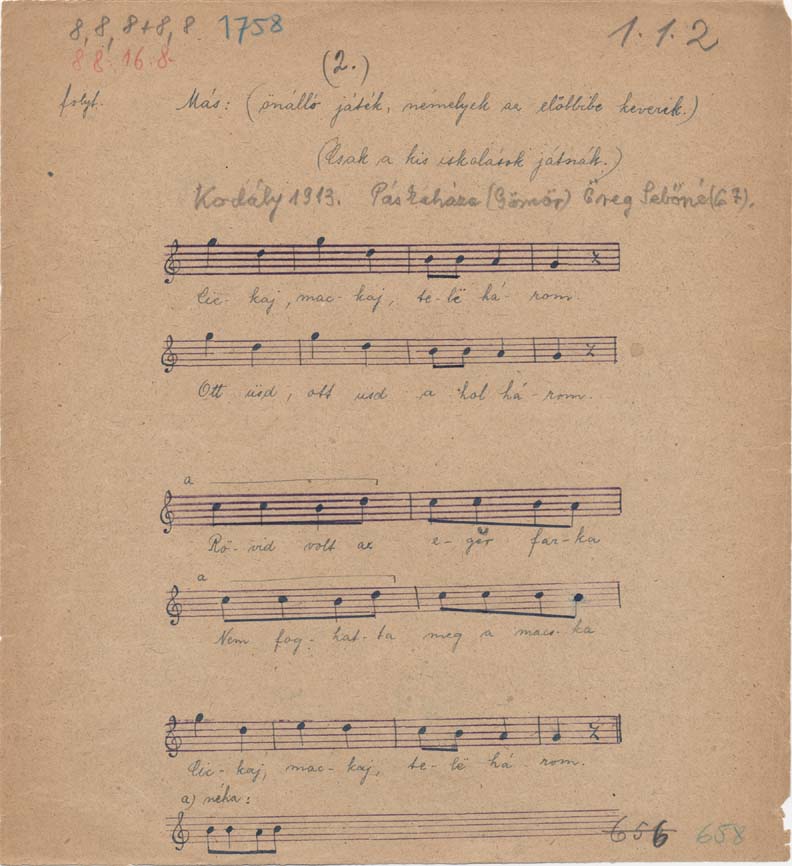 8, 8, 8+8, 8 1758 1.1.2
8 8. 16. 8.
(2.)
folyt. Más: (önálló játék, némelyek az előbbibe keverik.)
(Csak a kis iskolások játszák.)
Kodály 1913. Páskaháza (Gömör) Öreg Sebőné (67).
Cic-kaj, mac-kaj, te-lë há-rom.
Ott üsd, ott usd a hol há-rom.
a
Rö-vid volt az e-gër far-ka
a
Nem fog-hat-ta meg a macs-ka
Cic-kaj, mac-kaj, te-lë há-rom.
a) néha:
656 658